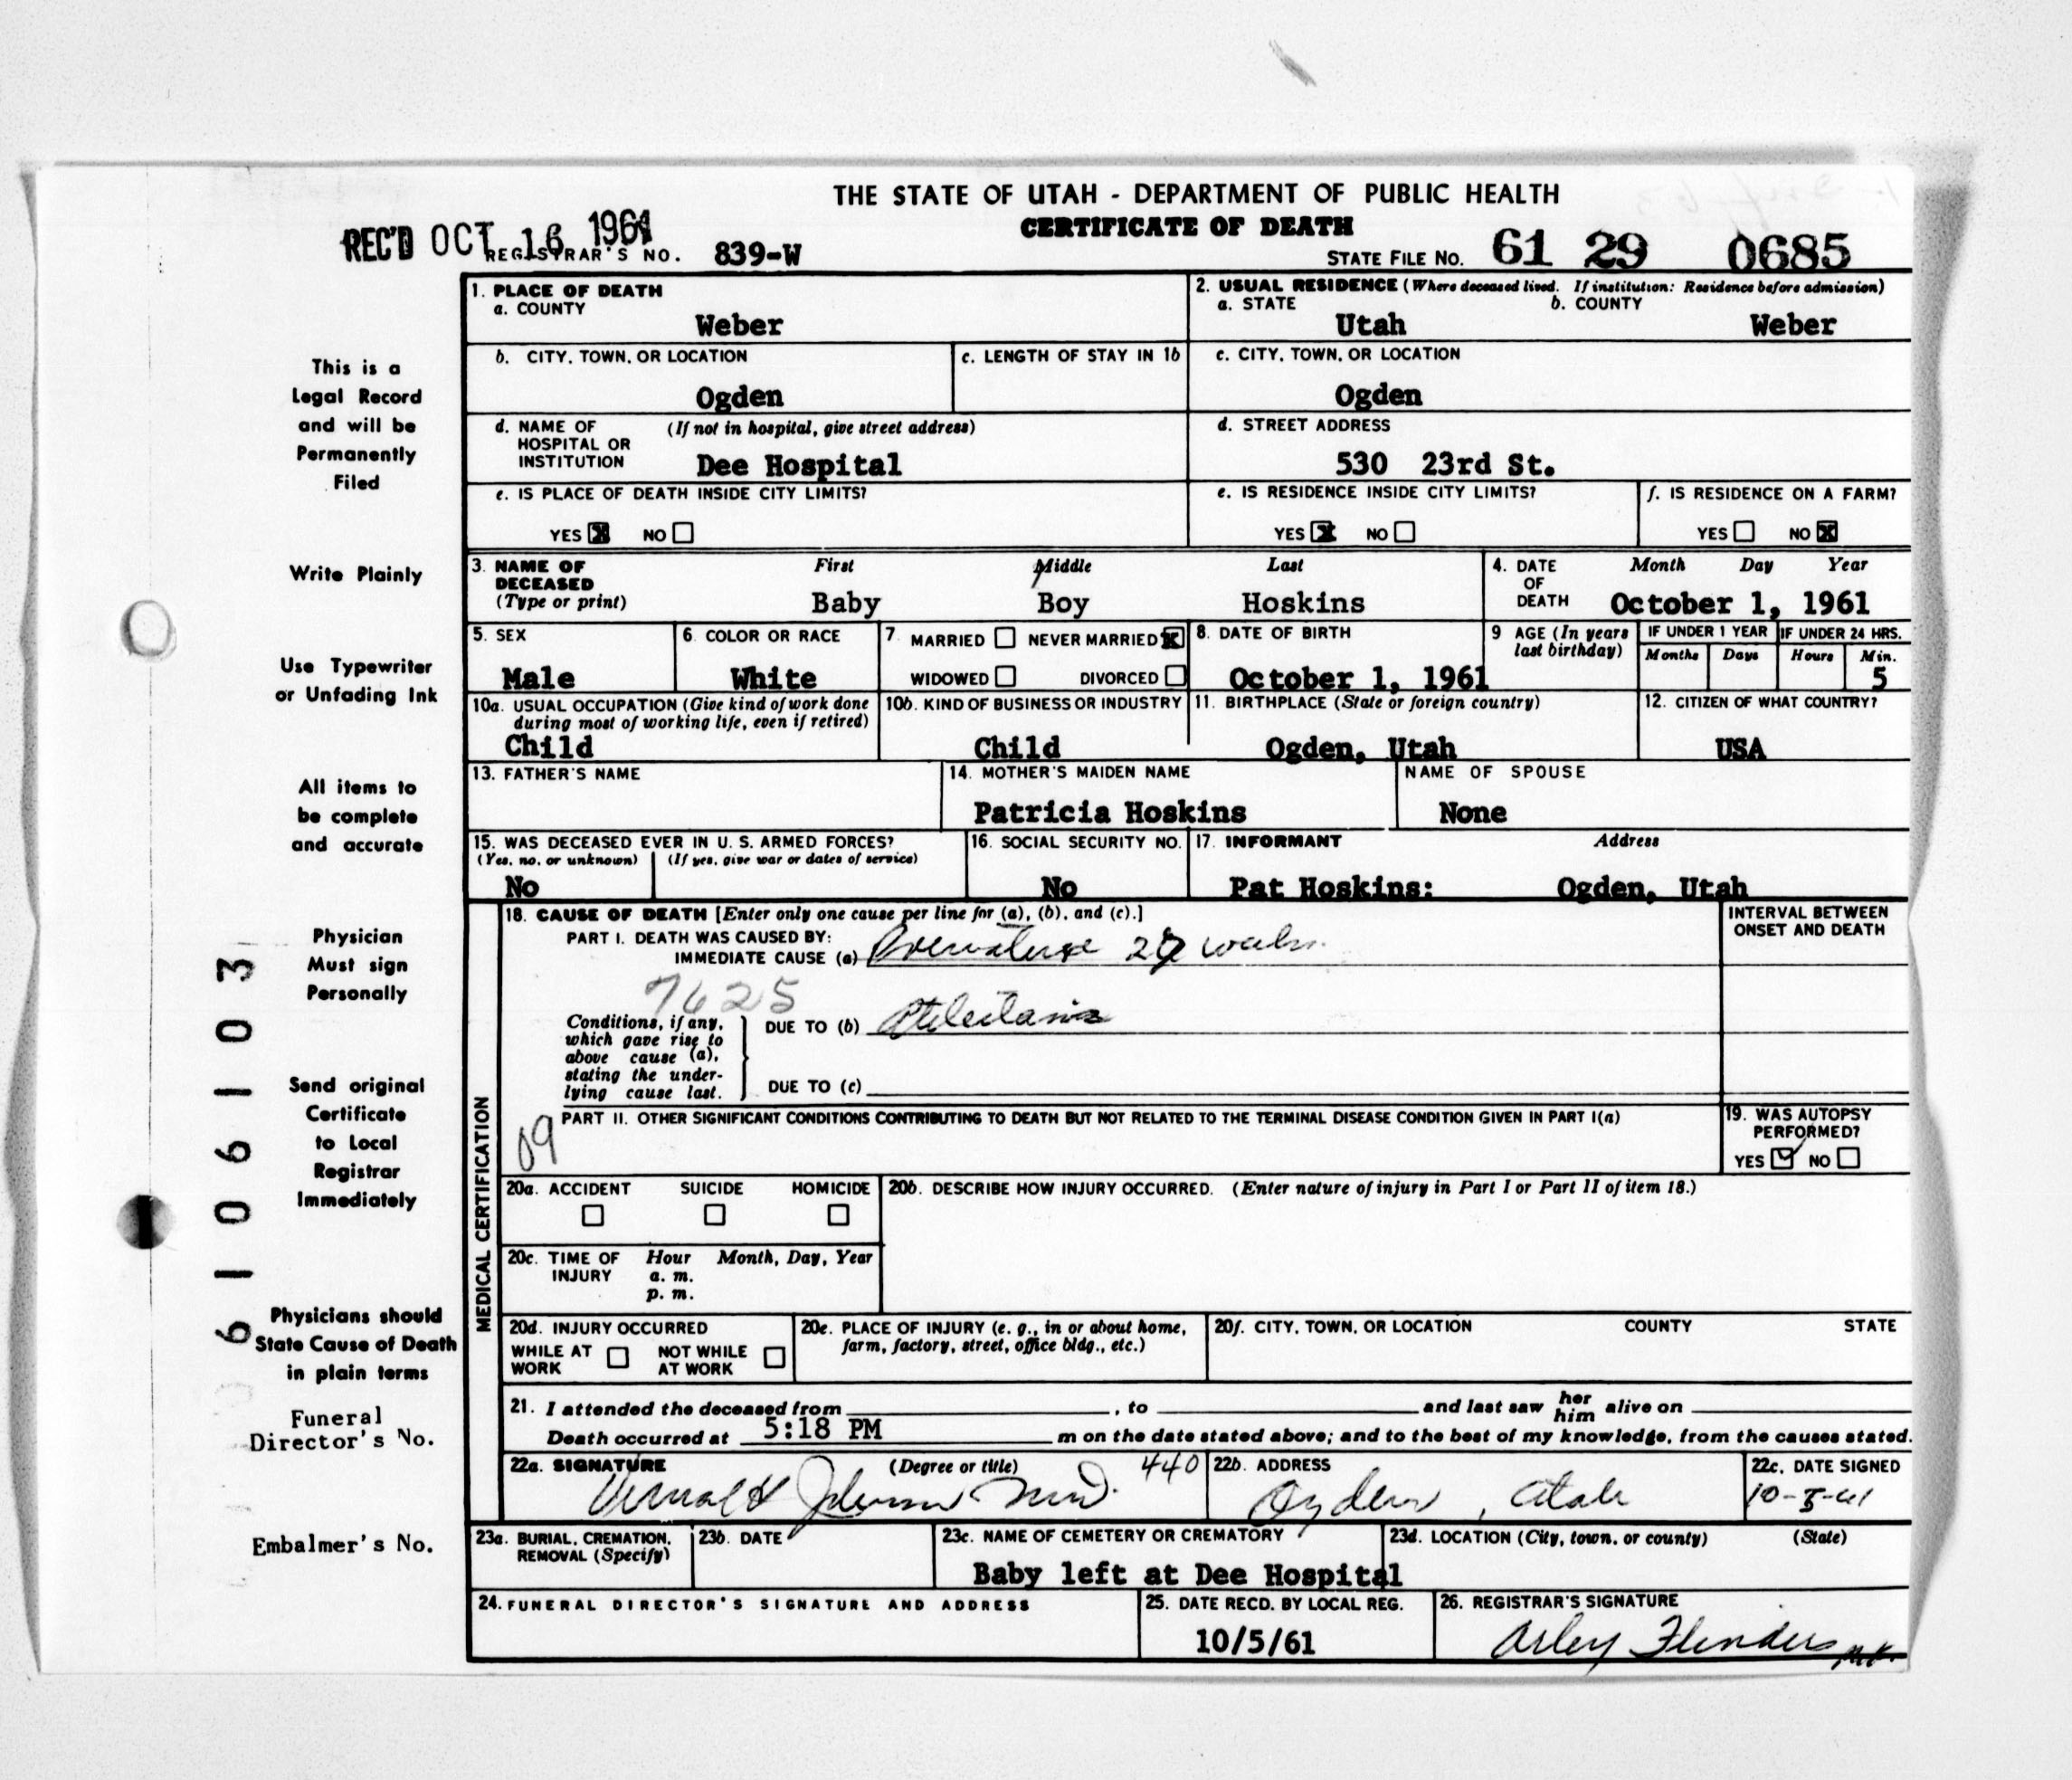 THE STATE OF UTAH - DEPARTMENT OF PUBLIC HEALTH
CERTIFICATE OF DEATH
REC'D OCT 16 1961
REGISTRAR'S NO. 839-W
STATE FILE NO. 61 29 0685
1. PLACE OF DEATH
a. COUNTY
Weber
2. USUAL RESIDENCE (Where deceased lived. If institution: Residence before admission)
a. STATE b. COUNTY
Utah Weber
b. CITY, TOWN, OR LOCATION
Ogden
c. LENGTH OF STAY IN 1b
c. CITY, TOWN, OR LOCATION
Ogden
d. NAME OF (If not in hospital, give street address)
HOSPITAL OR
INSTITUTION Dee Hospital
d. STREET ADDRESS
530 23rd St.
e. IS PLACE OF DEATH INSIDE CITY LIMITS?
YES X NO
e. IS RESIDENCE INSIDE CITY LIMITS?
YES X NO
f. IS RESIDENCE ON A FARM?
YES NO X
3. NAME OF First Middle Last
DECEASED
(Type or print) Baby Boy Hoskins
4. DATE Month Day Year
OF
DEATH October 1, 1961
5. SEX
Male
6. COLOR OR RACE
White
7. MARRIED NEVER MARRIED X
WIDOWED DIVORCED
8. DATE OF BIRTH
October 1, 1961
9 AGE (In years
last birthday)
IF UNDER 1 YEAR
Months Days
IF UNDER 24 HRS.
Hours Min.
5
10a. USUAL OCCUPATION (Give kind of work done
during most of working life, even if retired)
Child
10b. KIND OF BUSINESS OR INDUSTRY
Child
11. BIRTHPLACE (State or foreign country)
Ogden, Utah
12. CITIZEN OF WHAT COUNTRY?
USA
13. FATHER'S NAME
14. MOTHER'S MAIDEN NAME
Patricia Hoskins
NAME OF SPOUSE
None
15. WAS DECEASED EVER IN U. S. ARMED FORCES?
(Yes, no, or unknown) (If yes, give war or dates of service)
No
16. SOCIAL SECURITY NO.
No
17. INFORMANT Address
Pat Hoskins: Ogden, Utah
MEDICAL CERTIFICATION
18. CAUSE OF DEATH [Enter only one cause per line for (a), (b), and (c).]
PART I. DEATH WAS CAUSED BY:
IMMEDIATE CAUSE (a) Premature weeks
7625
Conditions, if any,
which gave rise to
above cause (a),
stating the under-
lying cause last.
DUE TO (b) Atelectasis
DUE TO (c)
INTERVAL BETWEEN
ONSET AND DEATH
09
PART II. OTHER SIGNIFICANT CONDITIONS CONTRIBUTING TO DEATH BUT NOT RELATED TO THE TERMINAL DISEASE CONDITION GIVEN IN PART I(a)
19. WAS AUTOPSY
PERFORMED?
YES ✓ NO
20a. ACCIDENT SUICIDE HOMICIDE
20b. DESCRIBE HOW INJURY OCCURRED. (Enter nature of injury in Part I or Part II of item 18.)
20c. TIME OF Hour Month, Day, Year
INJURY a. m.
p. m.
20d. INJURY OCCURRED
WHILE AT NOT WHILE
WORK AT WORK
20e. PLACE OF INJURY (e. g., in or about home,
farm, factory, street, office bldg., etc.)
20f. CITY, TOWN, OR LOCATION COUNTY STATE
21. I attended the deceased from , to and last saw her him alive on
Death occurred at 5:18 PM m on the date stated above; and to the best of my knowledge, from the causes stated.
22a. SIGNATURE (Degree or title) 440
Johnson M.D.
22b. ADDRESS
Ogden, Utah
22c. DATE SIGNED
10-5-61
23a. BURIAL, CREMATION,
REMOVAL (Specify)
23b. DATE
23c. NAME OF CEMETERY OR CREMATORY
Baby left at Dee Hospital
23d. LOCATION (City, town, or county) (State)
24. FUNERAL DIRECTOR'S SIGNATURE AND ADDRESS
25. DATE RECD. BY LOCAL REG.
10/5/61
26. REGISTRAR'S SIGNATURE
Arley Flinders
This is a
Legal Record
and will be
Permanently
Filed
Write Plainly
Use Typewriter
or Unfading Ink
All items to
be complete
and accurate
Physician
Must sign
Personally
Send original
Certificate
to Local
Registrar
Immediately
Physicians should
State Cause of Death
in plain terms
Funeral
Director's No.
Embalmer's No.
6106103